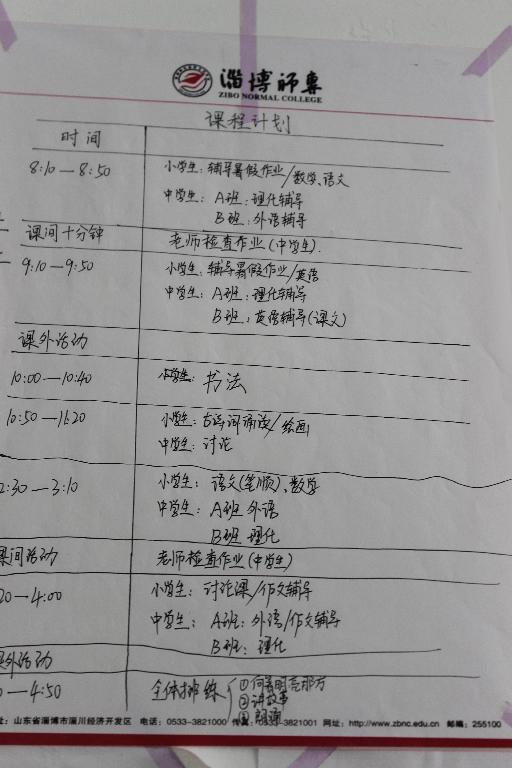 淄博师专
ZIBO NORMAL COLLEGE
课程计划
时间
8:10—8:50
小学生：辅导暑假作业/数学、语文
中学生：A班：理化辅导
B班：外语辅导
课间十分钟
老师检查作业(中学生).
9:10—9:50
小学生：辅导暑假作业/英语
中学生：A班：理化辅导
B班：英语辅导(课文)
课外活动
10:00—10:40
小学生：书法
10:50—11:20
小学生：古诗词诵读/绘画
中学生：讨论
2:30—3:10
小学生：语文(笔顺)、数学
中学生：A班 外语
B班 理化
课间活动
老师检查作业(中学生)
20—4:00
小学生：讨论课/作文辅导
中学生：A班：外语/作文辅导
B班：理化
课外活动
0—4:50
全体排练
①向着明亮那方
②讲故事
③朗诵
址：山东省淄博市淄川经济开发区 电话：0533-3821000 传真：0533-3821001 网址：http://www.zbnc.edu.cn 邮编：255100